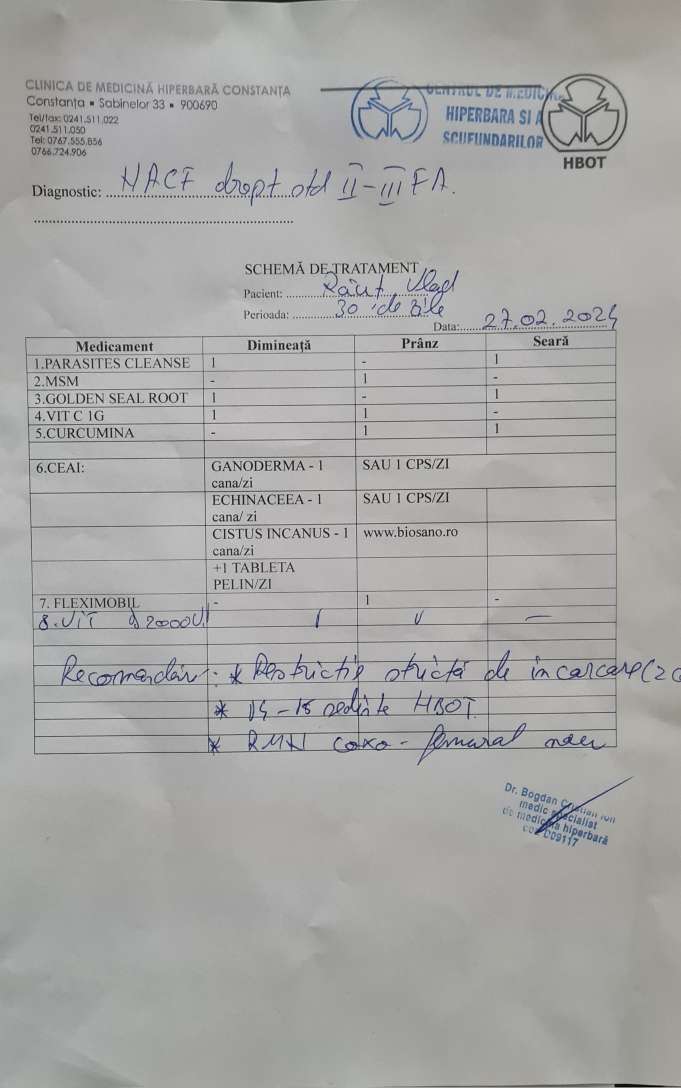 CLINICA DE MEDICINĂ HIPERBARĂ CONSTANȚA
Constanța ▪ Sabinelor 33 ▪ 900690
Tel/fax: 0241.511.022
0241.511.050
Tel: 0767.555.856
0766.724.906
CENTRUL DE MEDICINA
HIPERBARA SI A
SCUFUNDARILOR
HBOT
Diagnostic: NACF drept std II-III FA.
SCHEMĂ DE TRATAMENT
Pacient: Vlad
Perioada: 30 de zile
Data: 27.02.2024
Medicament Dimineață Prânz Seară
1.PARASITES CLEANSE 1 - 1
2.MSM - 1 -
3.GOLDEN SEAL ROOT 1 - 1
4.VIT C 1G 1 1 -
5.CURCUMINA - 1 1
6.CEAI: GANODERMA - 1 cana/zi SAU 1 CPS/ZI
ECHINACEEA - 1 cana/ zi SAU 1 CPS/ZI
CISTUS INCANUS - 1 cana/zi www.biosano.ro
+1 TABLETA PELIN/ZI
7. FLEXIMOBIL - 1 -
8. VIT D 2000UI
Recomandări: * Restricție strictă de încărcare
* HBOT
* RMN coxo-femural
Dr. Bogdan Cristian Ion
medic specialist
de medicina hiperbară